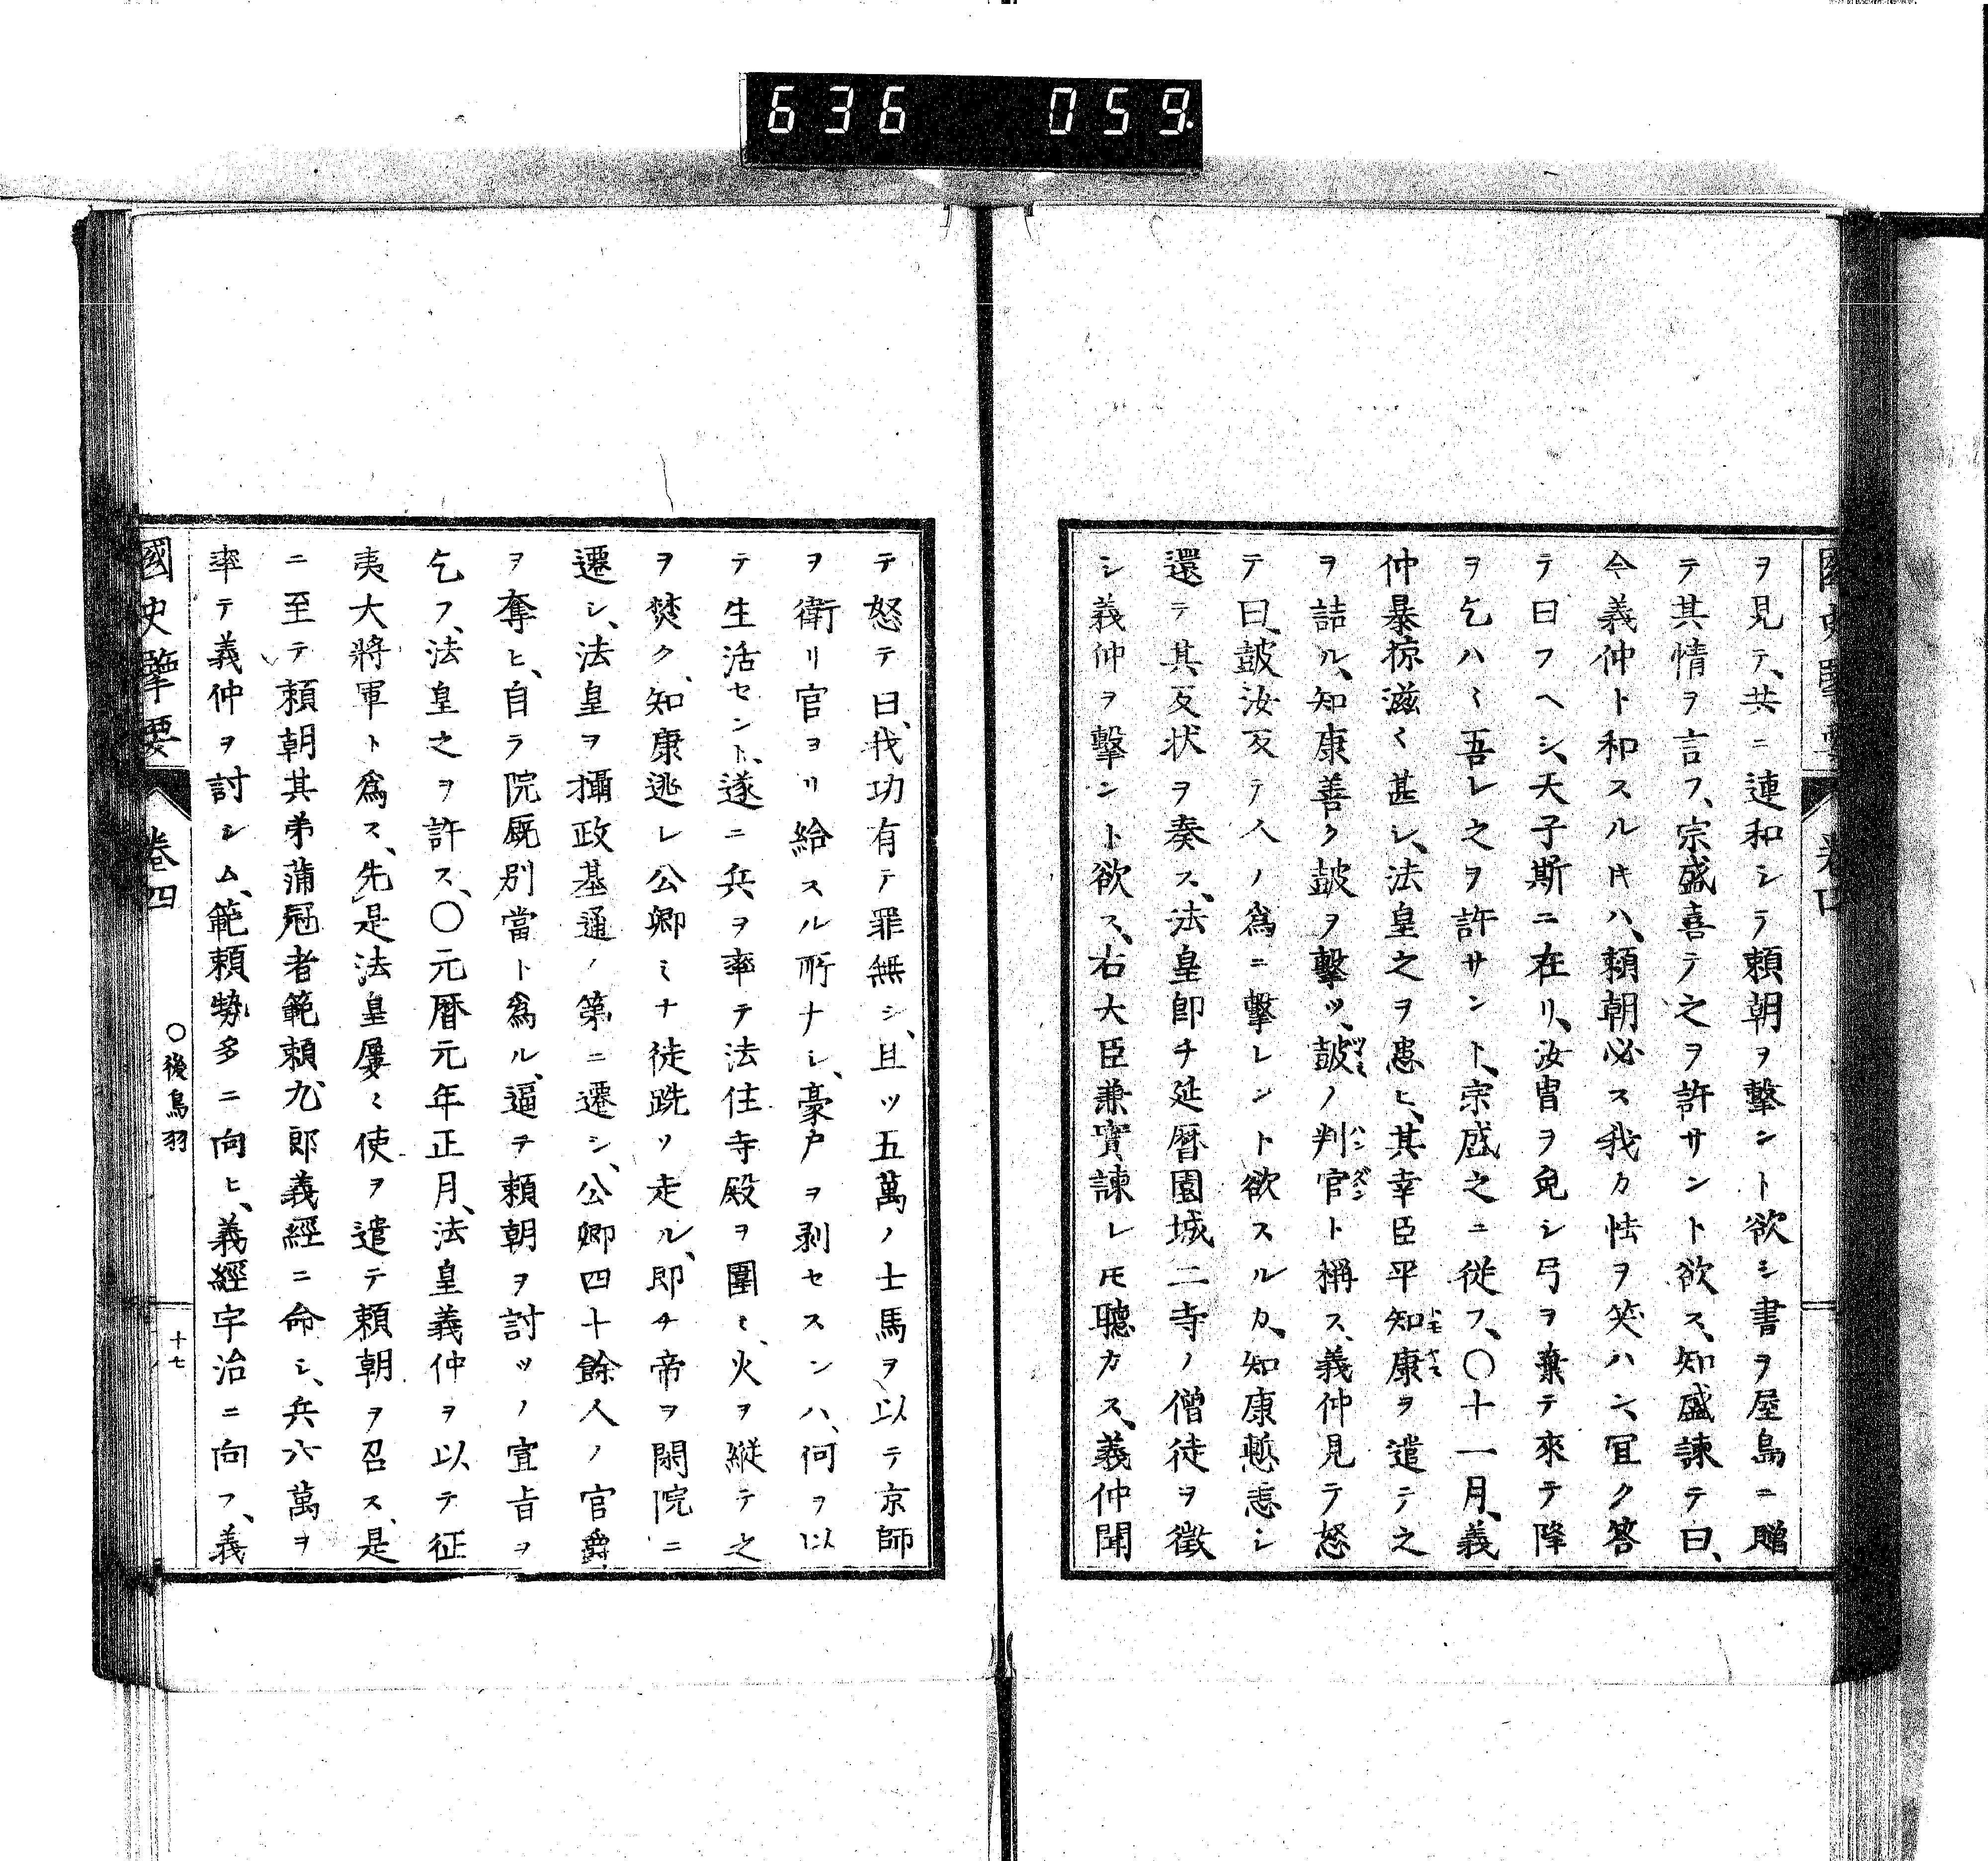 636 059.
ヲ見テ、共ニ連和シテ頼朝ヲ撃ント欲シ書ヲ屋島ニ贈
テ其情ヲ言フ、宗盛喜テ之ヲ許サント欲ス、知盛諫テ曰、
今義仲ト和スル𪜈ハ、頼朝必ス我カ怯ヲ笑ハン、宜ク答
テ曰フヘシ、天子斯ニ在リ、汝冑ヲ免シ弓ヲ棄テ來テ降
ヲ乞ハヽ吾レ之ヲ許サント、宗盛之ニ從フ、〇十一月、義
仲暴掠滋〻甚シ、法皇之ヲ患ヒ、其幸臣平知康ヲ遣テ之
ヲ詰ル、知康善ク皷ヲ撃ツ、皷ノ判官ト稱ス、義仲見テ怒
テ曰、皷汝反テ人ノ爲ニ撃レント欲スルカ、知康慙恚シ
還テ其反状ヲ奏ス、法皇即チ延暦園城二寺ノ僧徒ヲ徴
シ義仲ヲ撃ント欲ス、右大臣兼實諫レ𪜈聽カス、義仲聞
テ怒テ曰、我功有テ罪無シ、且ツ五萬ノ士馬ヲ以テ京師
ヲ衛リ官ヨリ給スル所ナシ、豪戸ヲ剥セスンハ、何ヲ以
テ生活セント、遂ニ兵ヲ率テ法住寺殿ヲ圍ミ、火ヲ縦テ之
ヲ焚ク、知康逃レ公卿ミナ徒跣ソ走ル、即チ帝ヲ閑院ニ
遷シ、法皇ヲ攝政基通ノ第ニ遷シ、公卿四十餘人ノ官爵
ヲ奪ヒ、自ラ院厩別當ト爲ル、逼テ頼朝ヲ討ツノ宣旨ヲ
乞フ、法皇之ヲ許ス、〇元暦元年正月、法皇義仲ヲ以テ征
夷大將軍ト爲ス、先是法皇屢〻使ヲ遣テ頼朝ヲ召ス、是
ニ至テ頼朝其弟蒲冠者範頼九郎義經ニ命シ、兵六萬ヲ
率テ義仲ヲ討シム、範頼勢多ニ向ヒ、義經宇治ニ向フ、義
國史擥要 卷四 〇後鳥羽 十七